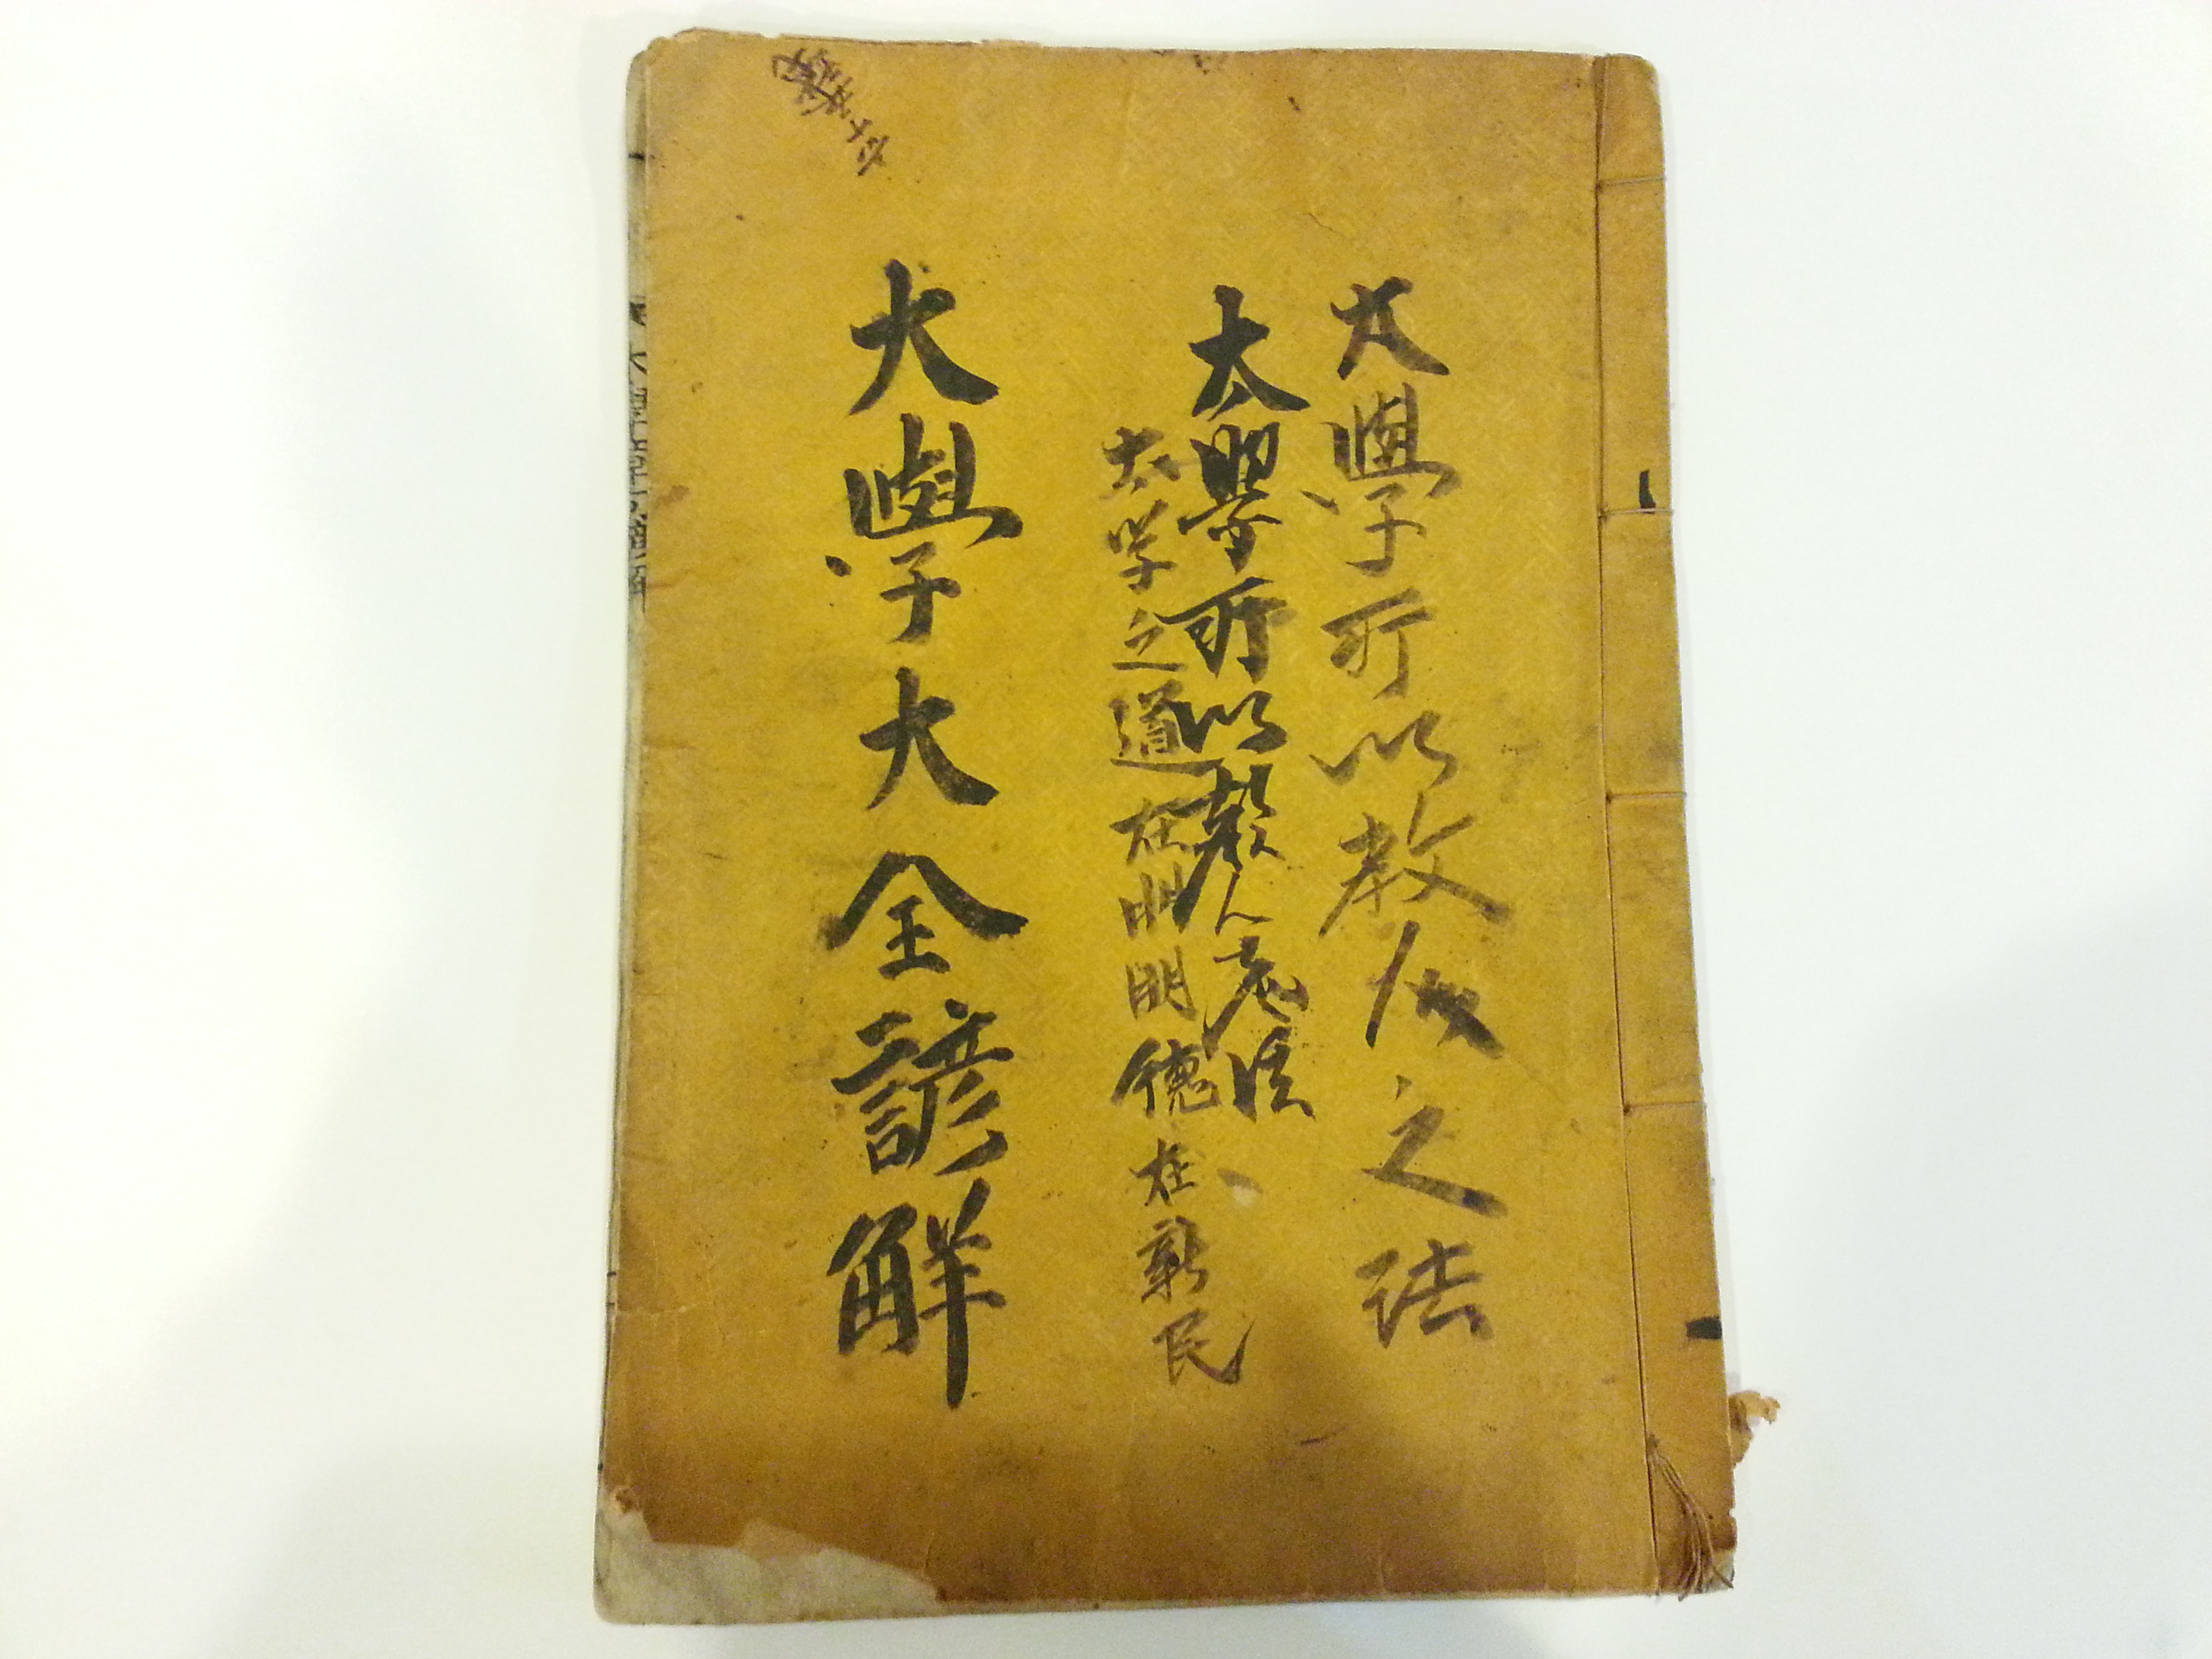 大學所以教人之法
太學所以教人之法
太学之道在明明德在新民
大學大全諺解